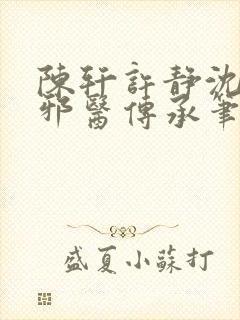 陳軒許靜沈
邪醫傳承筆
盛夏小蘇打